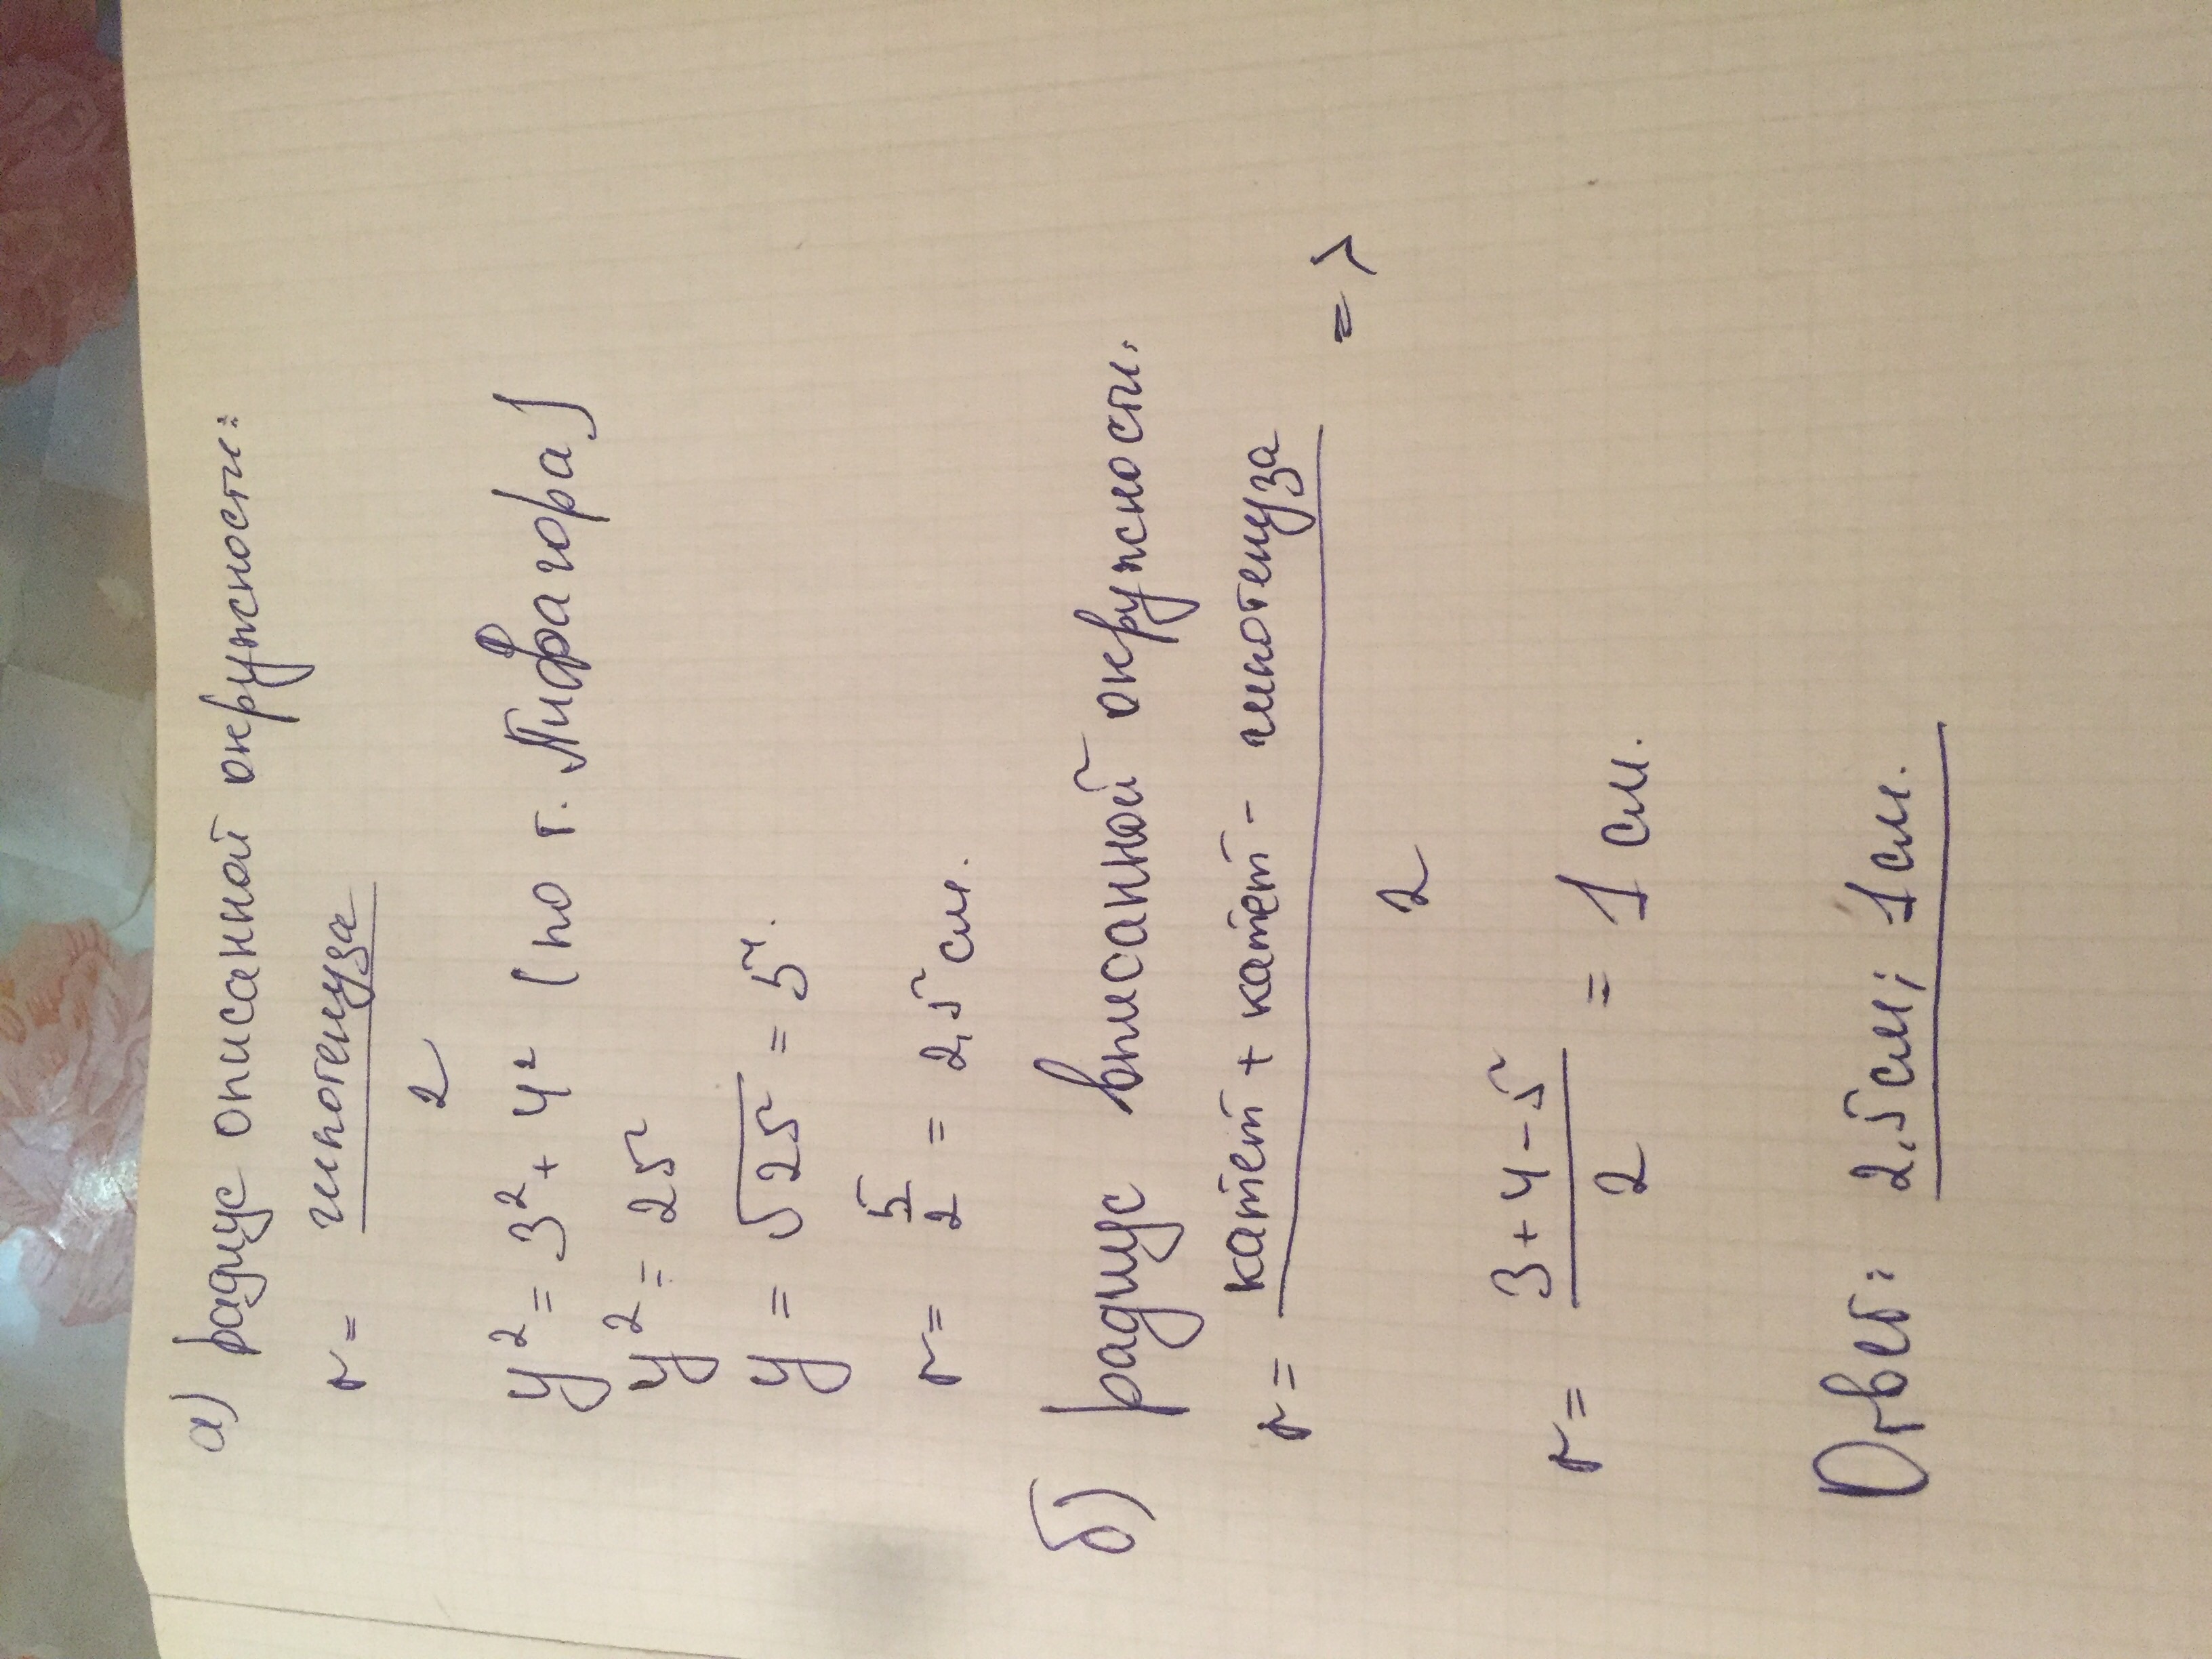 а) радиус описанной окружности:
r = гипотенуза
2
y² = 3² + 4² (по т. Пифагора)
y² = 25
y = √25 = 5
r = 5/2 = 2,5 см.
б) радиус вписанной окружности:
r = катет + катет - гипотенуза =>
2
r = 3 + 4 - 5 = 1 см.
2
Ответ: 2,5 см; 1 см.